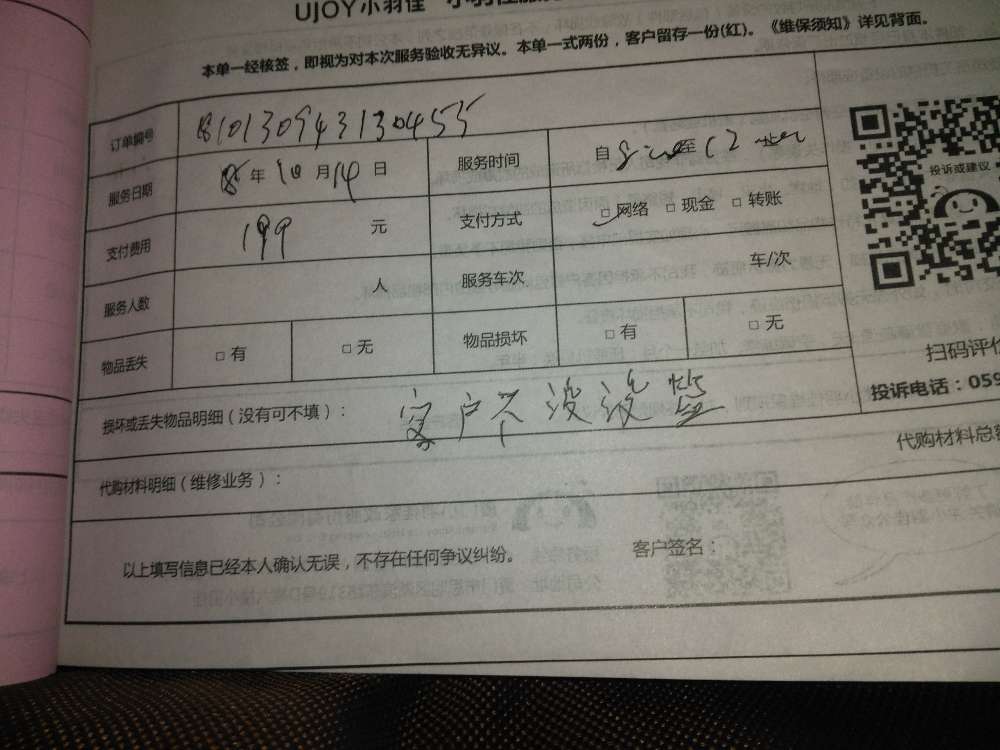 UJOY小羽佳
本单一经核签，即视为对本次服务验收无异议。本单一式两份，客户留存一份(红)。《维保须知》详见背面。
订单编号 810130943130455
服务日期 18年10月14日 服务时间 自 至12
支付费用 199元 支付方式 □网络 □现金 □转账
服务人数 人 服务车次 车/次
物品丢失 □有 □无 物品损坏 □有 □无
投诉或建议
扫码评价
投诉电话：059
损坏或丢失物品明细（没有可不填）： 客户不没说
代购材料明细（维修业务）： 代购材料总
以上填写信息已经本人确认无误，不存在任何争议纠纷。 客户签名：